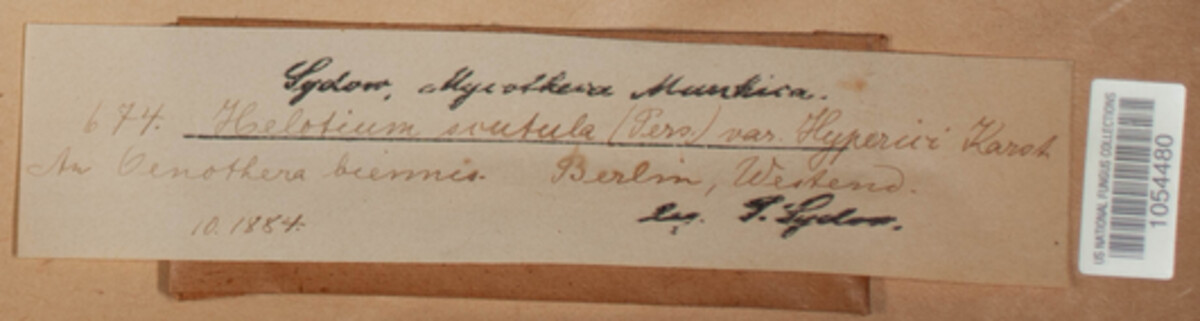 Sydow, Mycotheca Marchica.
674. Helotium scutula (Pers.) var. Hyperici Karst
An Oenothera biennis. Berlin, Westend.
10.1884.
leg. P. Sydow.
US NATIONAL FUNGUS COLLECTIONS
1054480